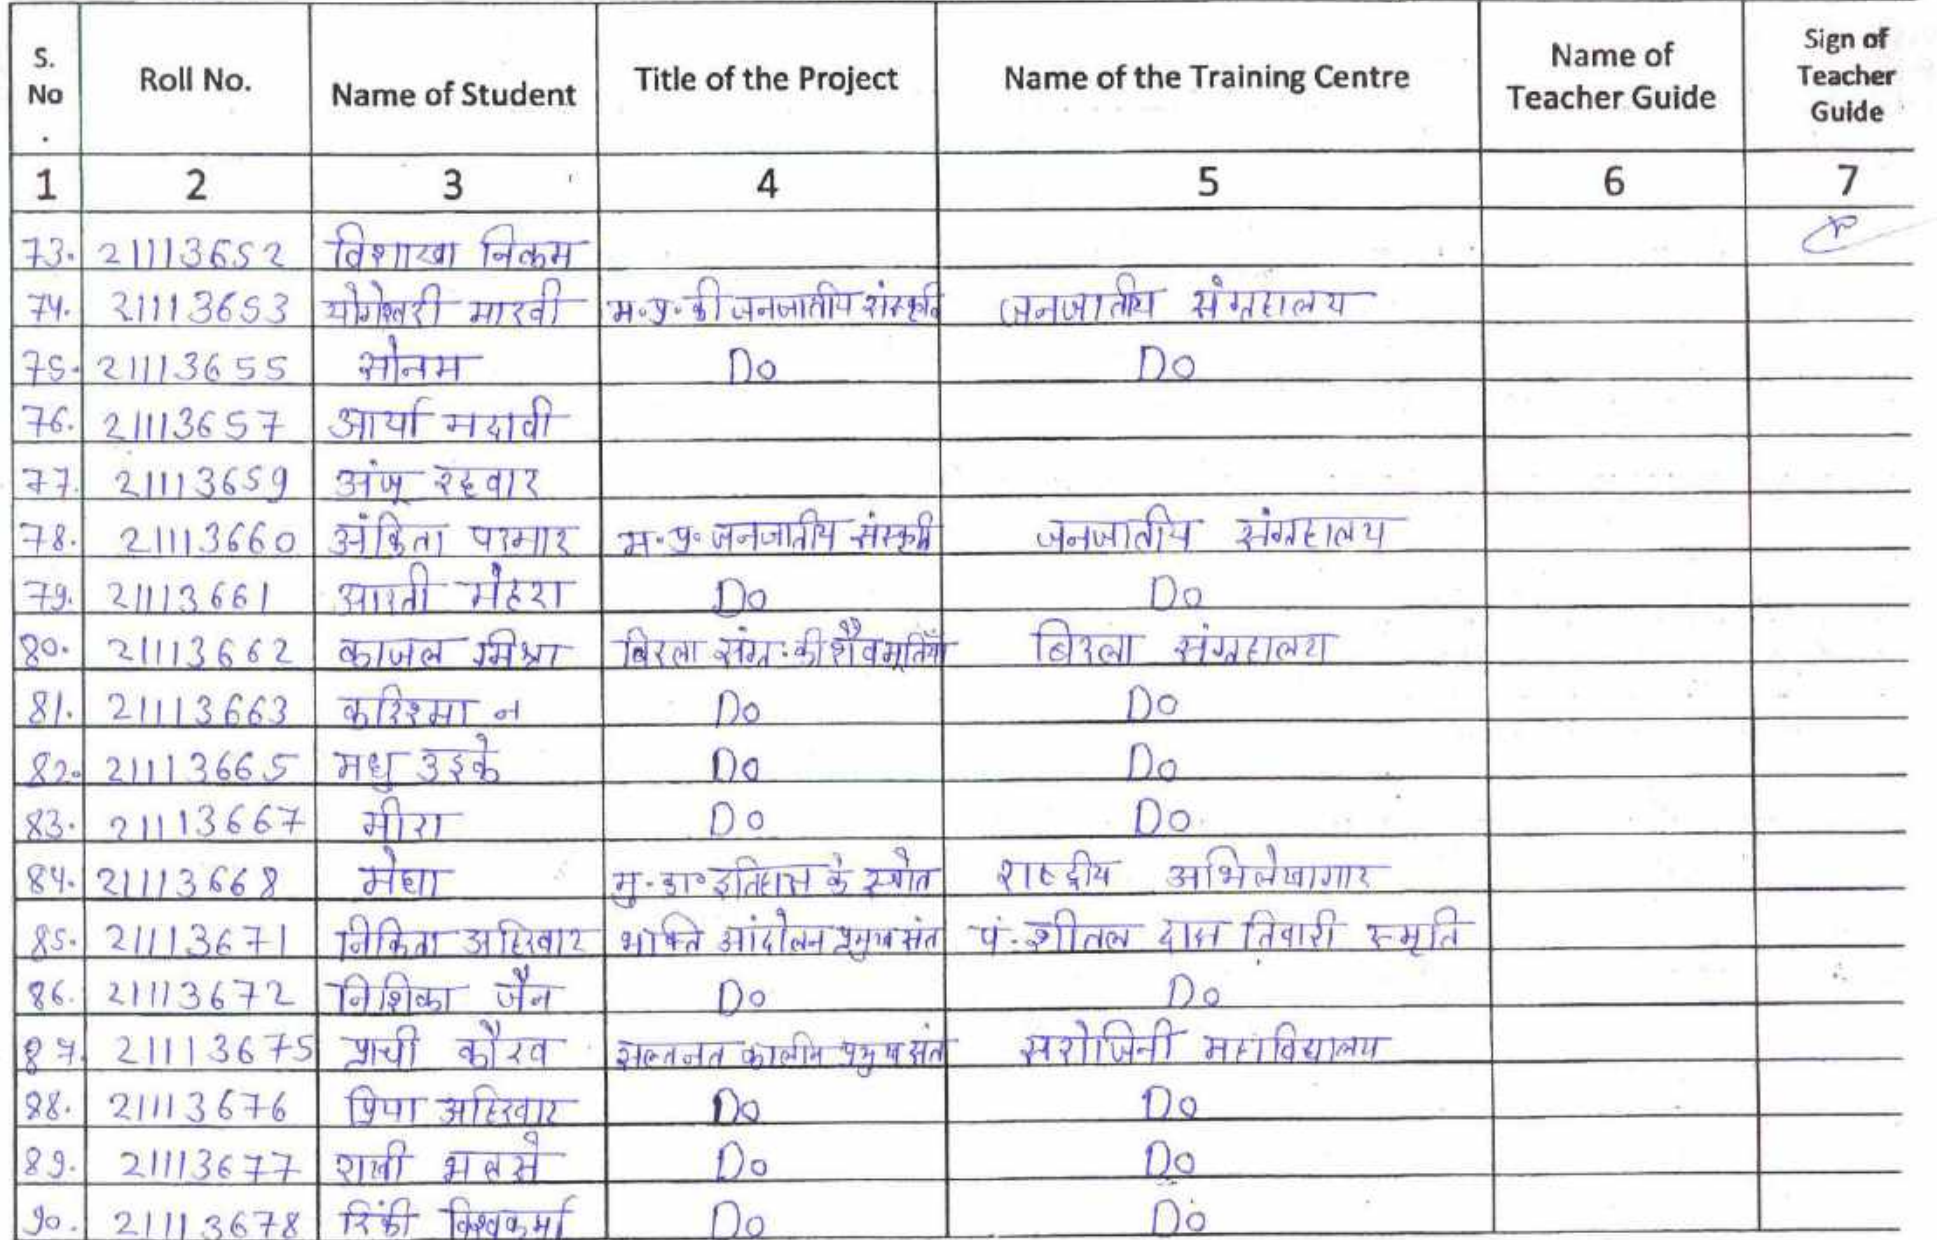 S. No. | Roll No. | Name of Student | Title of the Project | Name of the Training Centre | Name of Teacher Guide | Sign of Teacher Guide
1 | 2 | 3 | 4 | 5 | 6 | 7
73. | 21113652 | विशाखा निकम
74. | 21113653 | योगेश्वरी मारवी | म.प्र. की जनजातीय संस्कृति | जनजातीय संग्रहालय
75. | 21113655 | सोनम | Do | Do
76. | 21113657 | आर्या मदावी
77. | 21113659 | अंजू
78. | 21113660 | अंकिता परमार | म.प्र. जनजातीय संस्कृति | जनजातीय संग्रहालय
79. | 21113661 | आरती मेहरा | Do | Do
80. | 21113662 | काजल मिश्रा | बिरला संग्र: की शैव मूर्तियाँ | बिरला संग्रहालय
81. | 21113663 | करिश्मा न | Do | Do
82. | 21113665 | मधु उइके | Do | Do
83. | 21113667 | मीरा | Do | Do
84. | 21113668 | मेघा | मु. इतिहास के स्त्रोत | राष्ट्रीय अभिलेखागार
85. | 21113671 | निकिता अहिरवार | भक्ति आंदोलन प्रमुख संत | पं. शीतल दास तिवारी स्मृति
86. | 21113672 | निशिका जैन | Do | Do
87. | 21113675 | प्राची कौरव | सल्तनत कालीन प्रमुख संत | सरोजिनी महाविद्यालय
88. | 21113676 | प्रिया अहिरवार | Do | Do
89. | 21113677 | राखी | Do | Do
90. | 21113678 | रिंकी विश्वकर्मा | Do | Do